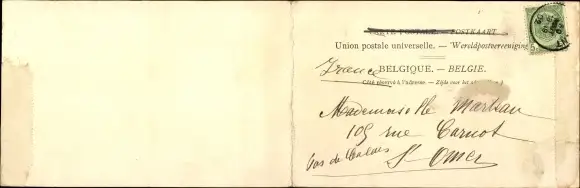 CARTE POSTALE. — POSTKAART
Union postale universelle. — Wereldpostvereeniging
France
BELGIQUE. — BELGIE.
Côté réservé à l'adresse. — Zijde voor het
Mademoiselle
105 rue Carnot
Pas de Calais
St Omer